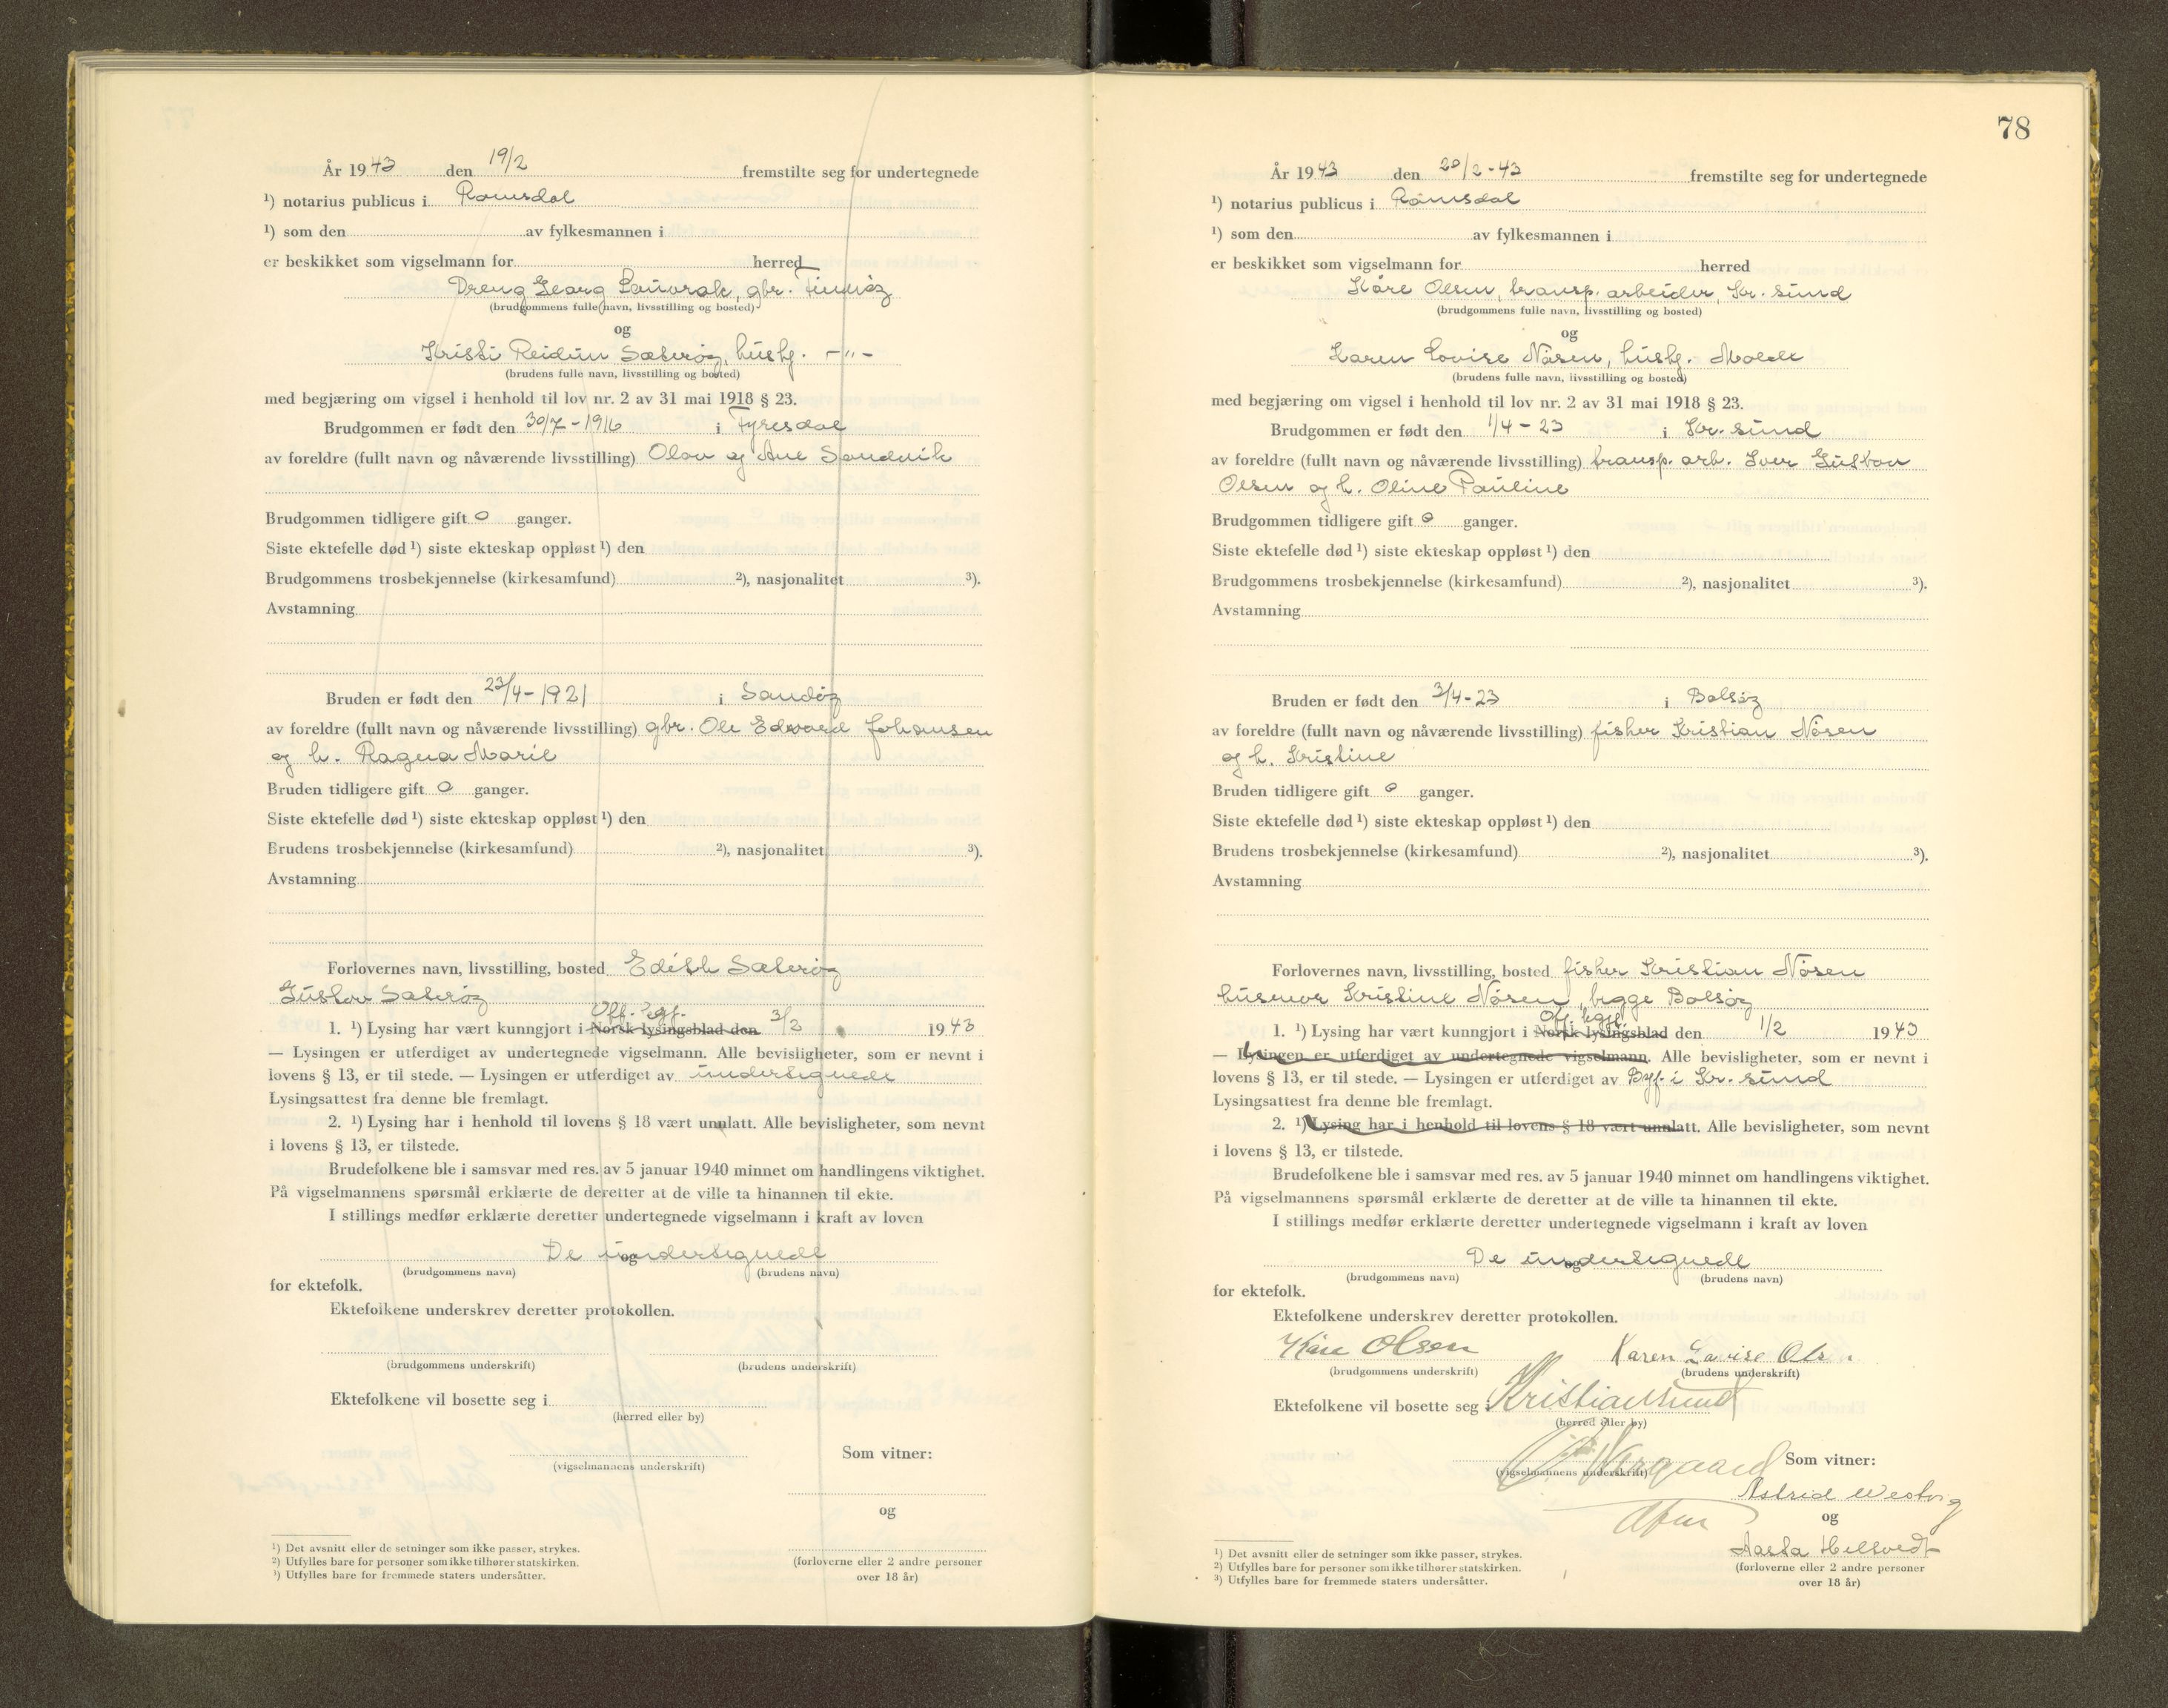 År 19 43 den 19/2 fremstilte seg for undertegnede
¹) notarius publicus i Romsdal
¹) som den av fylkesmannen i
er beskikket som vigselmann for herred
Dreng Georg Lauvrak, gbr.
(brudgommens fulle navn, livsstilling og bosted)
og
Kristi Reidun Sæterøy, hush. -"-
(brudens fulle navn, livsstilling og bosted)
med begjæring om vigsel i henhold til lov nr. 2 av 31 mai 1918 § 23.
Brudgommen er født den 30/7 - 1916 i Fyresdal
av foreldre (fullt navn og nåværende livsstilling) Olav og Ane Sandvik
Brudgommen tidligere gift 0 ganger.
Siste ektefelle død ¹) siste ekteskap oppløst ¹) den
Brudgommens trosbekjennelse (kirkesamfund) ²), nasjonalitet ³).
Avstamning
Bruden er født den 23/4 - 1921 i Sandøy
av foreldre (fullt navn og nåværende livsstilling) gbr. Ole Edvard Johansen
og h. Ragna Marie
Bruden tidligere gift 0 ganger.
Siste ektefelle død ¹) siste ekteskap oppløst ¹) den
Brudens trosbekjennelse (kirkesamfund) ²), nasjonalitet ³).
Avstamning
Forlovernes navn, livsstilling, bosted Edith Sæterøy
Gustav Sæterøy
Off. kgj.
1. ¹) Lysing har vært kunngjort i Norsk lysingsblad den 3/2 19 43
— Lysingen er utferdiget av undertegnede vigselmann. Alle bevisligheter, som er nevnt i
lovens § 13, er til stede. — Lysingen er utferdiget av undertegnede
Lysingsattest fra denne ble fremlagt.
2. ¹) Lysing har i henhold til lovens § 18 vært unnlatt. Alle bevisligheter, som nevnt
i lovens § 13, er tilstede.
Brudefolkene ble i samsvar med res. av 5 januar 1940 minnet om handlingens viktighet.
På vigselmannens spørsmål erklærte de deretter at de ville ta hinannen til ekte.
I stillings medfør erklærte deretter undertegnede vigselmann i kraft av loven
De undertegnede
og
(brudgommens navn) (brudens navn)
for ektefolk.
Ektefolkene underskrev deretter protokollen.
(brudgommens underskrift) (brudens underskrift)
Ektefolkene vil bosette seg i
(herred eller by)
Som vitner:
(vigselmannens underskrift)
og
¹) Det avsnitt eller de setninger som ikke passer, strykes.
²) Utfylles bare for personer som ikke tilhører statskirken.
³) Utfylles bare for fremmede staters undersåtter.
(forloverne eller 2 andre personer
over 18 år)
78
År 19 43 den 20/2 - 43 fremstilte seg for undertegnede
¹) notarius publicus i Romsdal
¹) som den av fylkesmannen i
er beskikket som vigselmann for herred
Kåre Olsen, transp. arbeider, Kr. sund
(brudgommens fulle navn, livsstilling og bosted)
og
Karen Lovise Nåsen, hush. Molde
(brudens fulle navn, livsstilling og bosted)
med begjæring om vigsel i henhold til lov nr. 2 av 31 mai 1918 § 23.
Brudgommen er født den 1/4 - 23 i Kr. sund
av foreldre (fullt navn og nåværende livsstilling) transp. arb. Iver Gustav
Olsen og h. Oline Pauline
Brudgommen tidligere gift 0 ganger.
Siste ektefelle død ¹) siste ekteskap oppløst ¹) den
Brudgommens trosbekjennelse (kirkesamfund) ²), nasjonalitet ³).
Avstamning
Bruden er født den 3/4 - 23 i Bolsøy
av foreldre (fullt navn og nåværende livsstilling) fisker Kristian Nåsen
og h. Kristine
Bruden tidligere gift 0 ganger.
Siste ektefelle død ¹) siste ekteskap oppløst ¹) den
Brudens trosbekjennelse (kirkesamfund) ²), nasjonalitet ³).
Avstamning
Forlovernes navn, livsstilling, bosted fisker Kristian Nåsen
husmor Kristine Nåsen, begge Bolsøy
Off. kgj.
1. ¹) Lysing har vært kunngjort i Norsk lysingsblad den 1/2 19 43
— Lysingen er utferdiget av undertegnede vigselmann. Alle bevisligheter, som er nevnt i
lovens § 13, er til stede. — Lysingen er utferdiget av Byf. i Kr. sund
Lysingsattest fra denne ble fremlagt.
2. ¹) Lysing har i henhold til lovens § 18 vært unnlatt. Alle bevisligheter, som nevnt
i lovens § 13, er tilstede.
Brudefolkene ble i samsvar med res. av 5 januar 1940 minnet om handlingens viktighet.
På vigselmannens spørsmål erklærte de deretter at de ville ta hinannen til ekte.
I stillings medfør erklærte deretter undertegnede vigselmann i kraft av loven
De undertegnede
og
(brudgommens navn) (brudens navn)
for ektefolk.
Ektefolkene underskrev deretter protokollen.
Kåre Olsen Karen Lovise Olsen
(brudgommens underskrift) (brudens underskrift)
Ektefolkene vil bosette seg i Kristiansund
(herred eller by)
Som vitner:
(vigselmannens underskrift)
Astrid
og
Aasta
¹) Det avsnitt eller de setninger som ikke passer, strykes.
²) Utfylles bare for personer som ikke tilhører statskirken.
³) Utfylles bare for fremmede staters undersåtter.
(forloverne eller 2 andre personer
over 18 år)